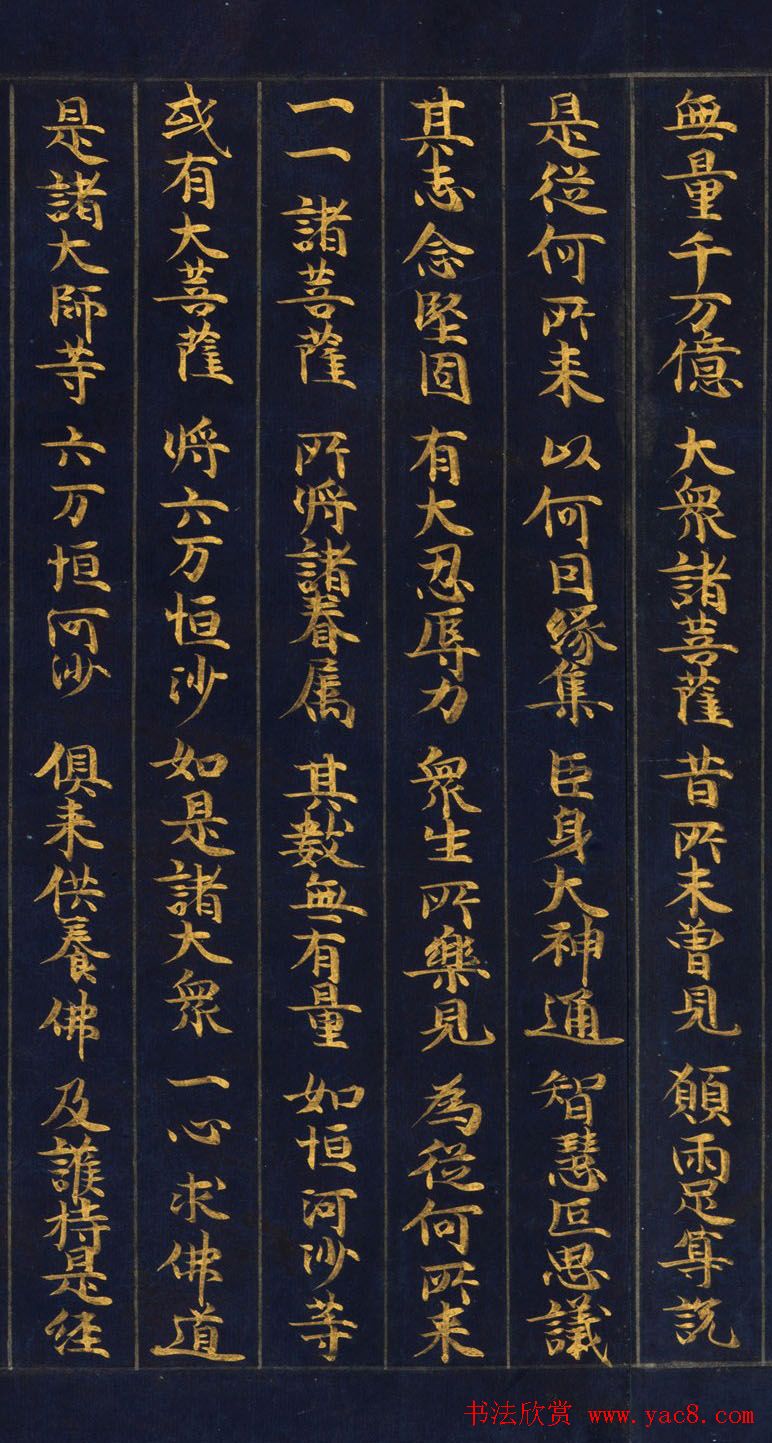 無量千万億 大衆諸菩薩 昔所未曽見 願兩足尊説
是從何所来 以何因緣集 臣身大神通 智慧叵思議
其志念堅固 有大忍辱力 衆生所樂見 為從何所来
一一諸菩薩 所將諸眷属 其數無有量 如恒河沙等
或有大菩薩 將六万恒沙 如是諸大衆 一心求佛道
是諸大師等 六万恒河沙 俱来供養佛 及護持是経
书法欣赏 www.yac8.com